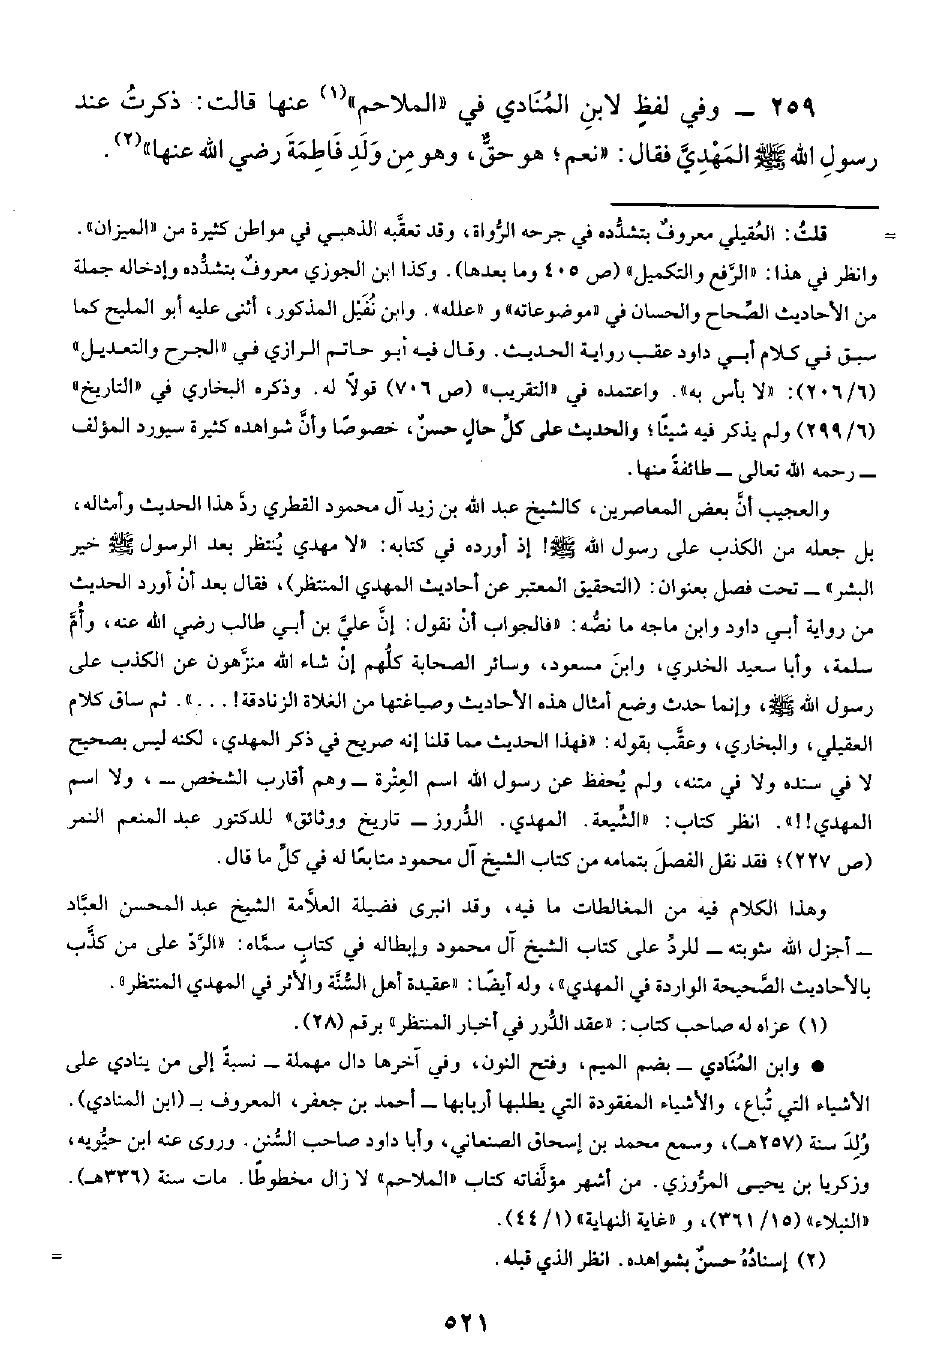 ٢٥٩ ــ وفي لفظٍ لابنِ المُنَادي في «الملاحم»(١) عنها قالت: ذكرتُ عند
رسولِ الله ﷺ المَهْديَّ فقال: «نعم؛ هو حقٌّ، وهو مِن وَلَدِ فَاطِمَةَ رضي الله عنها»(٢).
= قلتُ: العُقيلي معروفٌ بتشدُّده في جرحه الرُّواة، وقد تعقَّبه الذهبي في مواطن كثيرة من «الميزان».
وانظر في هذا: «الرَّفع والتكميل» (ص ٤٠٥ وما بعدها). وكذا ابن الجوزي معروفٌ بتشدُّده وإدخاله جملة
من الأحاديث الصِّحاح والحسان في «موضوعاته» و «علله». وابن نُفَيْل المذكور، أثنى عليه أبو المليح كما
سبق في كلام أبي داود عقب رواية الحديث. وقال فيه أبو حاتم الرازي في «الجرح والتعديل»
(٢٠٦/٦): «لا بأس به». واعتمده في «التقريب» (ص ٧٠٦) قولاً له. وذكره البخاري في «التاريخ»
(٢٩٩/٦) ولم يذكر فيه شيئًا؛ والحديث على كلِّ حالٍ حسنٌ، خصوصًا وأنَّ شواهده كثيرة سيورد المؤلف
ــ رحمه الله تعالى ــ طائفةً منها.
والعجيب أنَّ بعض المعاصرين، كالشيخ عبد الله بن زيد آل محمود القطري ردَّ هذا الحديث وأمثاله،
بل جعله من الكذب على رسول الله ﷺ! إذ أورده في كتابه: «لا مهدي يُنتظر بعد الرسول ﷺ خير
البشر» ــ تحت فصل بعنوان: (التحقيق المعتبر عن أحاديث المهدي المنتظر)، فقال بعد أنْ أورد الحديث
من رواية أبي داود وابن ماجه ما نصُّه: «فالجواب أنْ نقول: إنَّ عليَّ بن أبي طالب رضي الله عنه، وأُمَّ
سلمة، وأبا سعيد الخدري، وابنَ مسعود، وسائر الصحابة كلُّهم إنْ شاء الله منزَّهون عن الكذب على
رسول الله ﷺ، وإنما حدث وضع أمثال هذه الأحاديث وصياغتها من الغلاة الزنادقة!...». ثم ساق كلام
العقيلي، والبخاري، وعقَّب بقوله: «فهذا الحديث مما قلنا إنه صريح في ذكر المهدي، لكنه ليس بصحيح
لا في سنده ولا في متنه، ولم يُحفظ عن رسول الله اسم العِتْرة ــ وهم أقارب الشخص ــ ، ولا اسم
المهدي!!». انظر كتاب: «الشِّيعة. المهدي. الدُّروز ــ تاريخ ووثائق» للدكتور عبد المنعم النمر
(ص ٢٢٧)؛ فقد نقل الفصلَ بتمامه من كتاب الشيخ آل محمود متابعًا له في كلِّ ما قال.
وهذا الكلام فيه من المغالطات ما فيه، وقد انبرى فضيلة العلاَّمة الشيخ عبد المحسن العبَّاد
ــ أجزل الله مثوبته ــ للردِّ على كتاب الشيخ آل محمود وإبطاله في كتابٍ سمَّاه: «الرَّدّ على من كذَّب
بالأحاديث الصَّحيحة الواردة في المهدي»، وله أيضًا: «عقيدة أهل السُّنَّة والأثر في المهدي المنتظر».
(١) عزاه له صاحب كتاب: «عقد الدُّرر في أخبار المنتظر» برقم (٢٨).
● وابن المُنَادي ــ بضم الميم، وفتح النون، وفي آخرها دال مهملة ــ نسبةً إلى من ينادي على
الأشياء التي تُباع، والأشياء المفقودة التي يطلبها أربابها ــ أحمد بن جعفر، المعروف بـ (ابن المنادي).
وُلِدَ سنة (٢٥٧هـ)، وسمع محمد بن إسحاق الصنعاني، وأبا داود صاحب السُّنن. وروى عنه ابن حيُّويه،
وزكريا بن يحيى المرُّوزي. من أشهر مؤلَّفاته كتاب «الملاحم» لا زال مخطوطًا. مات سنة (٣٣٦هـ).
«النبلاء» (٣٦١/١٥)، و «غاية النهاية» (٤٤/١).
(٢) إسنادُهُ حسنٌ بشواهده. انظر الذي قبله. =
٥٢١